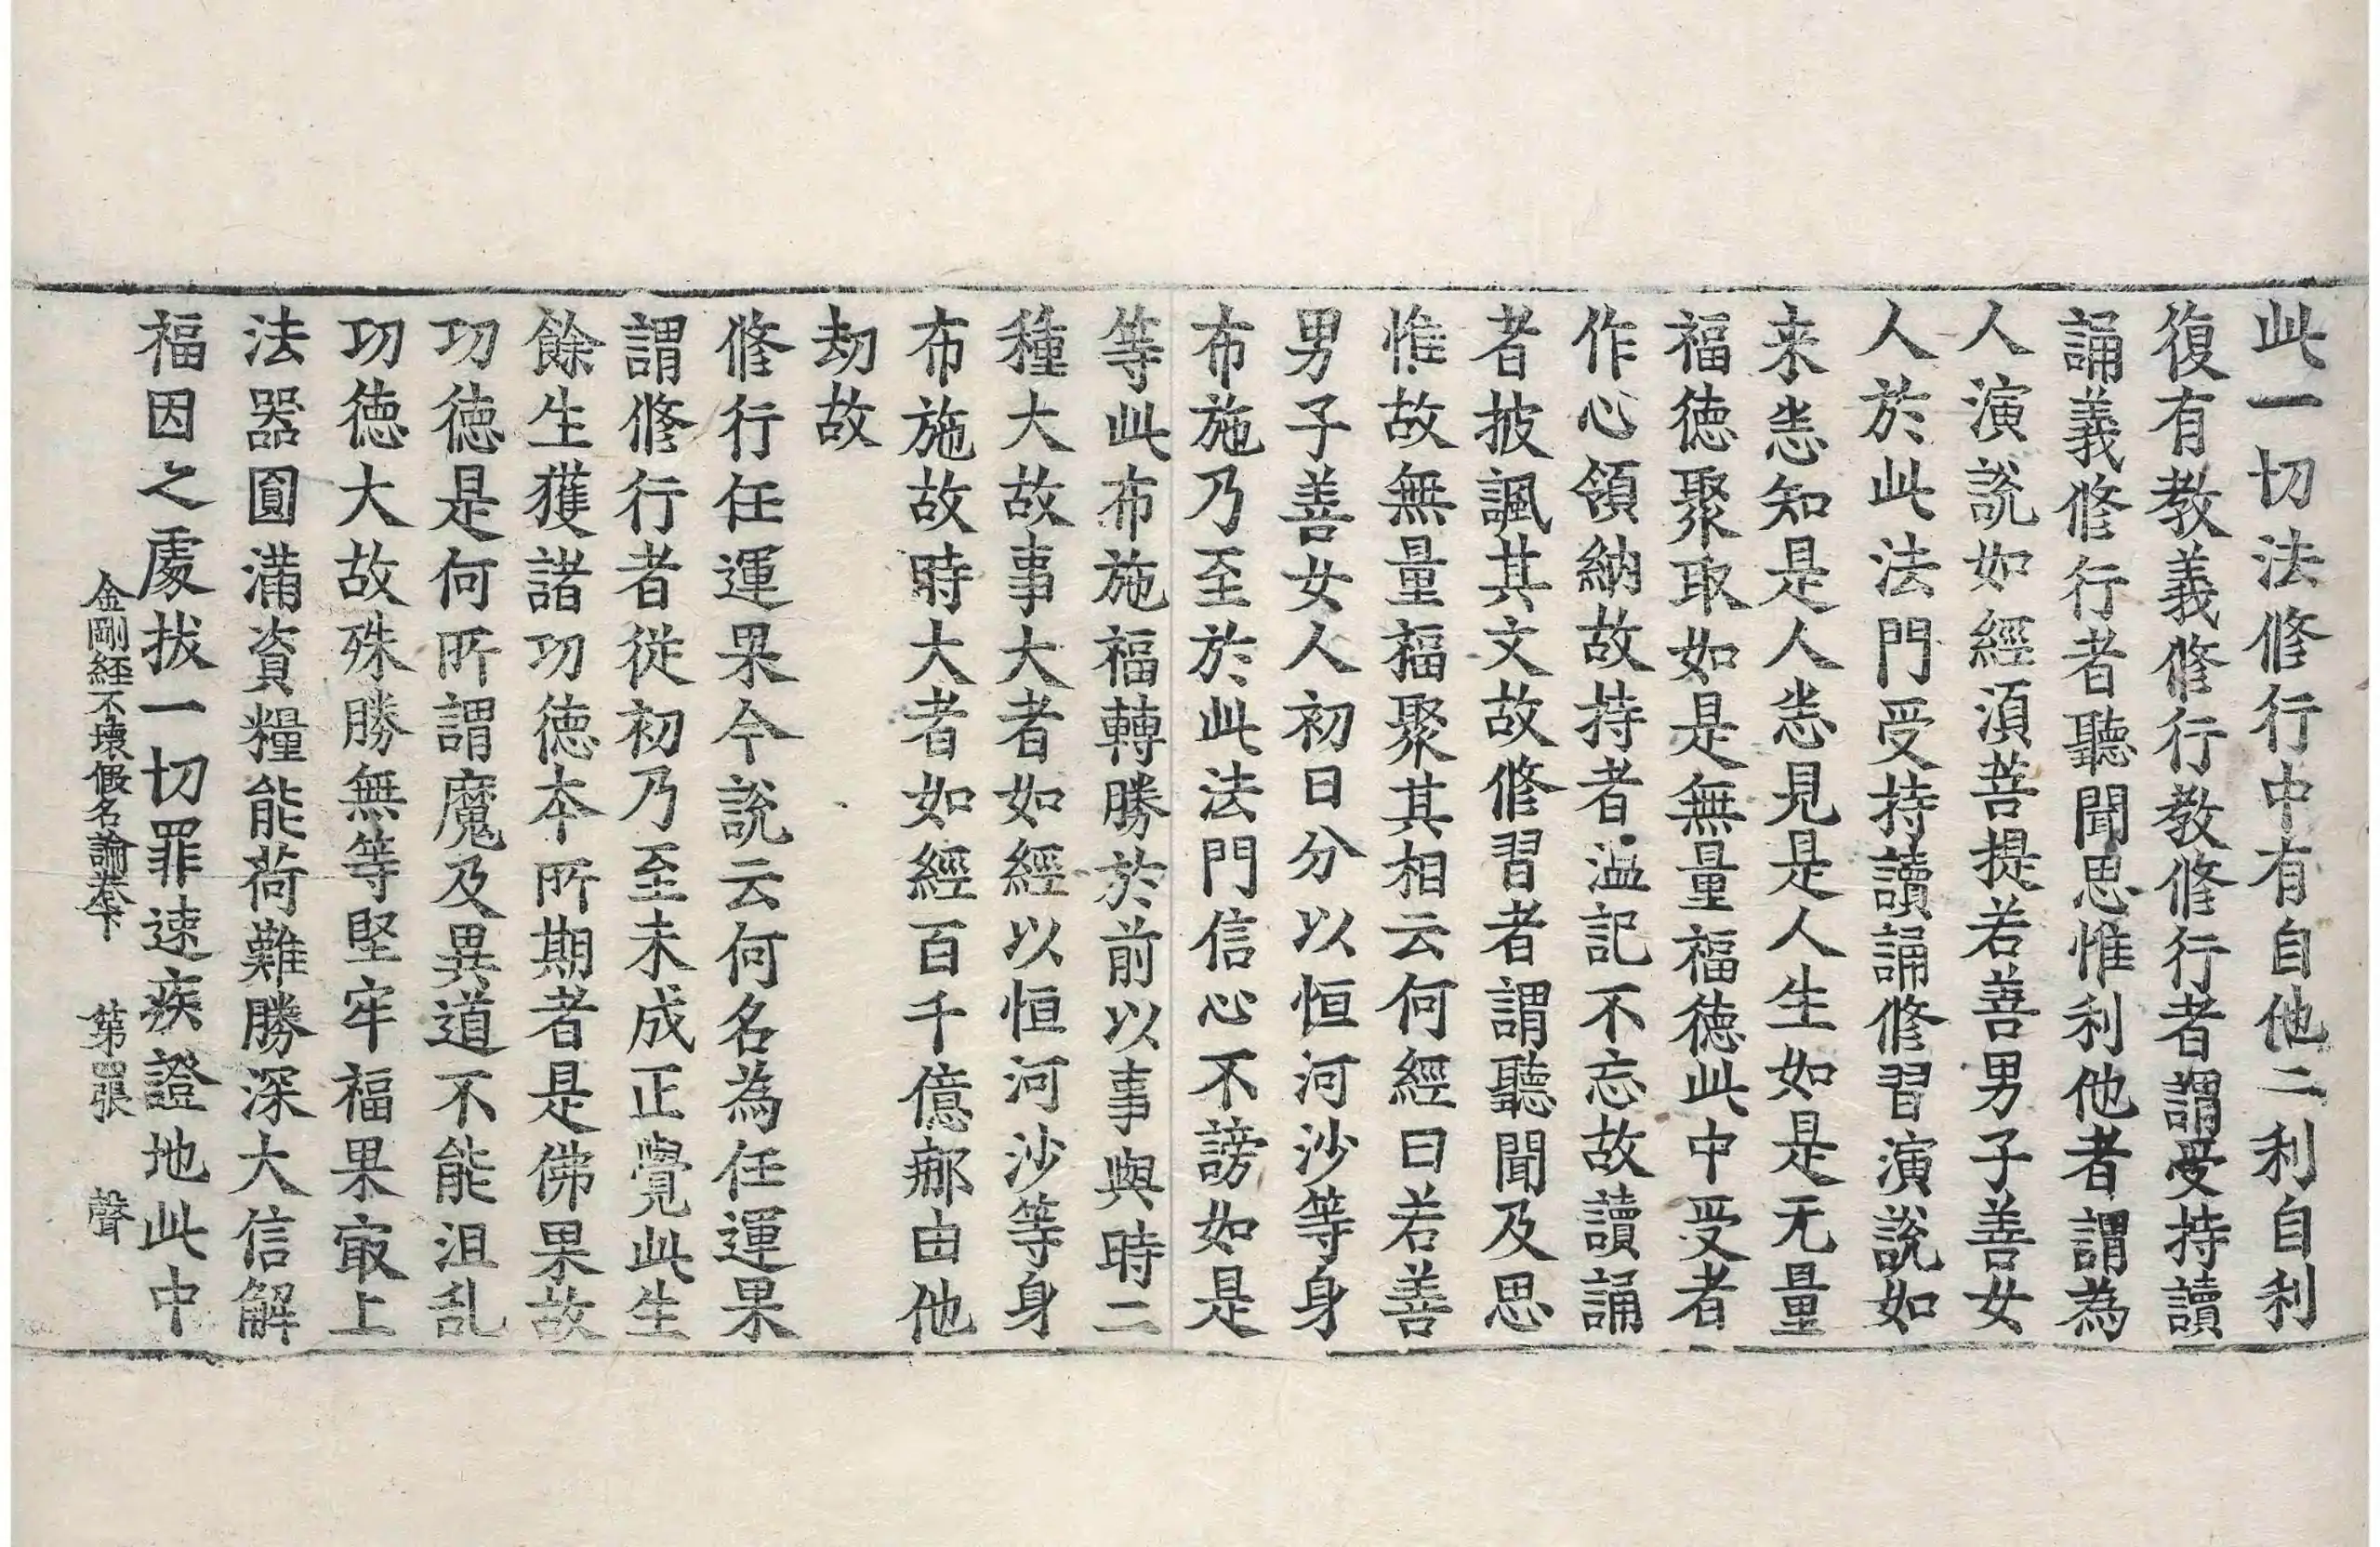 此一切法修行中有自他二利自利
復有教義修行教修行者謂受持讀
誦義修行者聽聞思惟利他者謂為
人演說如經湏菩提若善男子善女
人於此法門受持讀誦修習演說如
来悉知是人悉見是人生如是无量
福德聚取如是無量福德此中受者
作心領納故持者温記不忘故讀誦
者披諷其文故修習者謂聽聞及思
惟故無量福聚其相云何經曰若善
男子善女人初日分以恒河沙等身
布施乃至於此法門信心不謗如是
等此布施福轉勝於前以事與時二
種大故事大者如經以恒河沙等身
布施故時大者如經百千億那由他
劫故
修行任運果今說云何名為任運果
謂修行者從初乃至未成正覺此生
餘生獲諸功德本所期者是佛果故
功德是何所謂魔及異道不能沮乱
功德大故殊勝無等堅牢福果㝡上
法器圓滿資糧能荷難勝深大信解
福因之處拔一切罪速疾證地此中
金剛經不壞假名論卷下 第四張 聲